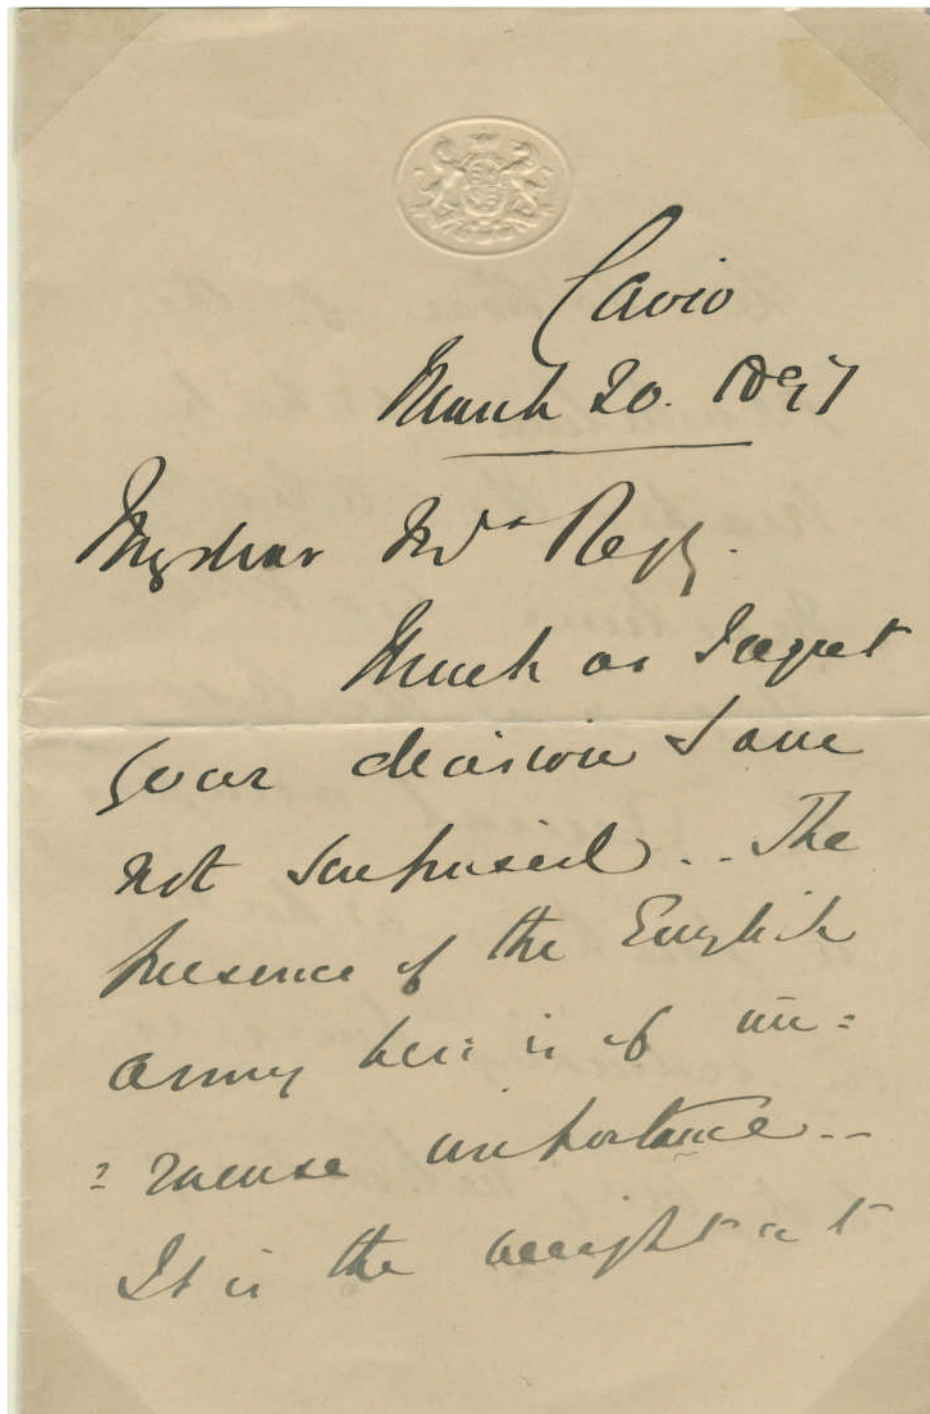 Cairo
March 20. 1897
My dear Mrs
Much as I regret
your decision I am
not surprised... The
presence of the English
Army here is of im=
=mense importance--
It is the weight at